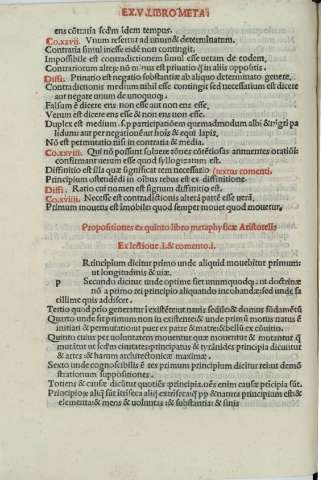 EX.V.LIBRO META
ens cōtraria secūdm idem tempus.
Co.xxvii. Vnum refertur ad unum & determinatum.
Contraria simul inesse eidē non contingit.
Impossibile est contradictionem simul esse ueram de eodem.
Contrariorum alteꝝ nō minus est priuatio q̄ in aliis oppositis.
Diffi. Priuatio est negatio substantiæ ab aliquo determinato genere.
Contradictionis medium nihil esse contingit sed necessarium est dicere
aut negare unum de unoquoq;
Falsum ē dicere ens non esse aut non ens esse.
Verum est dicere ens esse & non ens non esse.
Duplex est medium .s. ꝑ participatiōem quemadmodum albi & nigri pa
lidum aut per negationē ut hois & equi lapis.
Nō est permutatio nisi in contraria & media.
Co.xxviii. Qui nō possunt soluere rōnes cōtētiosas annuentes oratiōi
confirmant uerum esse quod syllogizatum est.
Diffinitio est illa quæ significat rem necessario (textus comenti.
Principium ostendēdi in oībus rebus est ex diffinitione.
Diffi. Ratio cui nomen est signum diffinitio est.
Co.xviiii. Necesse est contradictionis alterā partē esse uerā.
Primum mouens est imobile: quod semper mouet quod mouetur.
Propositiones ex quinto libro metaphysicæ Aristotelis
Ex lectione .I. & comento .I.
Rincipium dicitur primo unde aliquid mouebitur primum: ut longitudinis & uiæ.
p Secundo dicitur unde optime fiet unumquodq; ut doctrinæ
nō a primo rei principio aliquando inchoandæ: sed unde fa
cillime quis addiscet.
Tertio quod prio generatur existēs ut nauis sedile & domus fūdamētū
Quarto unde fit primum non in existente & unde primū motus natus ē
initiari & permutationi ut puer ex patre & matre & bellū ex cōuitio.
Quinto cuius per uoluntatem mouentur quæ mouentur & mutantur q̄
mutātur ut ciuitatum principatus & tyrānides principia dicuntur
& artes: & harum architectonicæ maximæ.
Sexto unde cognoscibilis ē res primum principium dicitur rei ut demō
strationum suppositiones.
Totiens & causæ dicūtur quotiēs principia. oēs enim causæ prīcipia sūt.
Principioꝝ aliq̄ sūt ītriseca aliq̄ extriseca: q̄ ꝓp & natura principium est: &
elementa: & mens & uoluntas & substantia: & finis